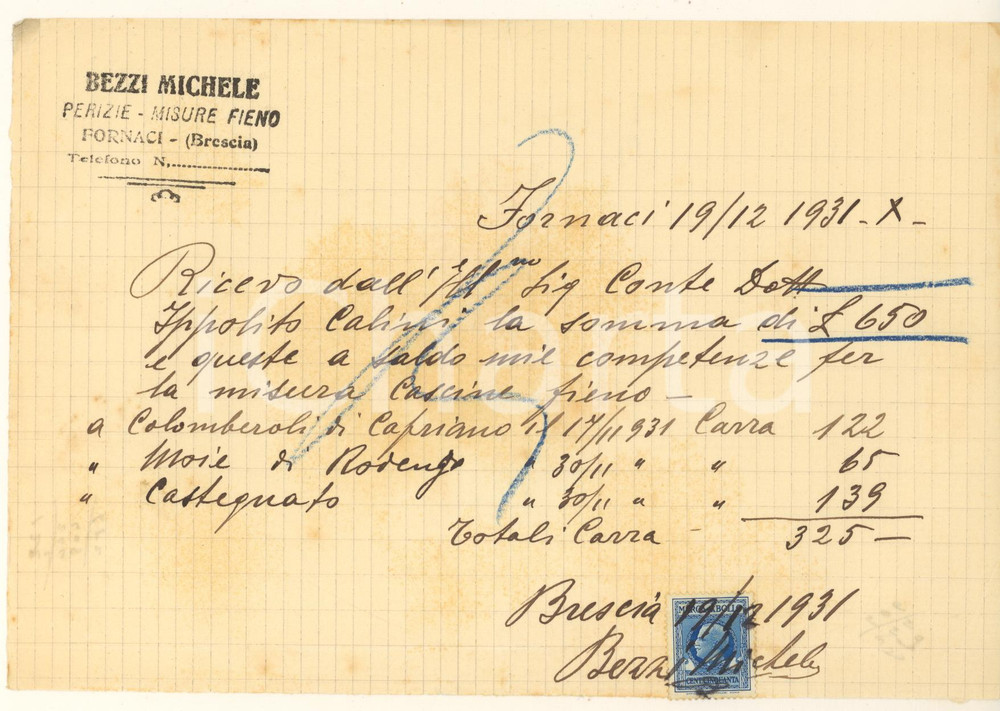 BEZZI MICHELE
PERIZIE - MISURE FIENO
FORNACI - (Brescia)
Telefono N.
Fornaci 19/12 1931 - X -
Ricevo dall' Ill mo Sig Conte Dott
Ippolito Calini la somma di £ 650
e queste a saldo mie competenze per
la misura Cascine fieno -
a Colomberoli di Capriano il 17/11 1931 Carra 122
" Moie di Rodengo " 30/11 " " 65
" Castegnato " 30/11 " " 139
Totali Carra - 325 -
Brescia 19/12 1931
MARCA DA BOLLO
Bezzi Michele
CENT. CINQUANTA
iCharta